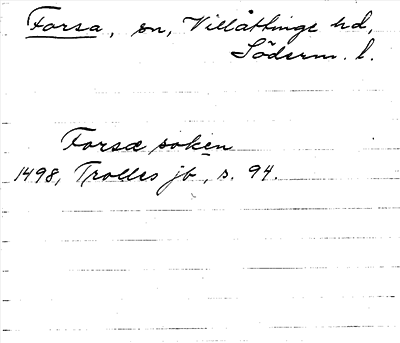 Forsa, sn, Villåttinge hd,
Söderm. l.
Forsæ soken
1498, Trolles jb, s. 94.